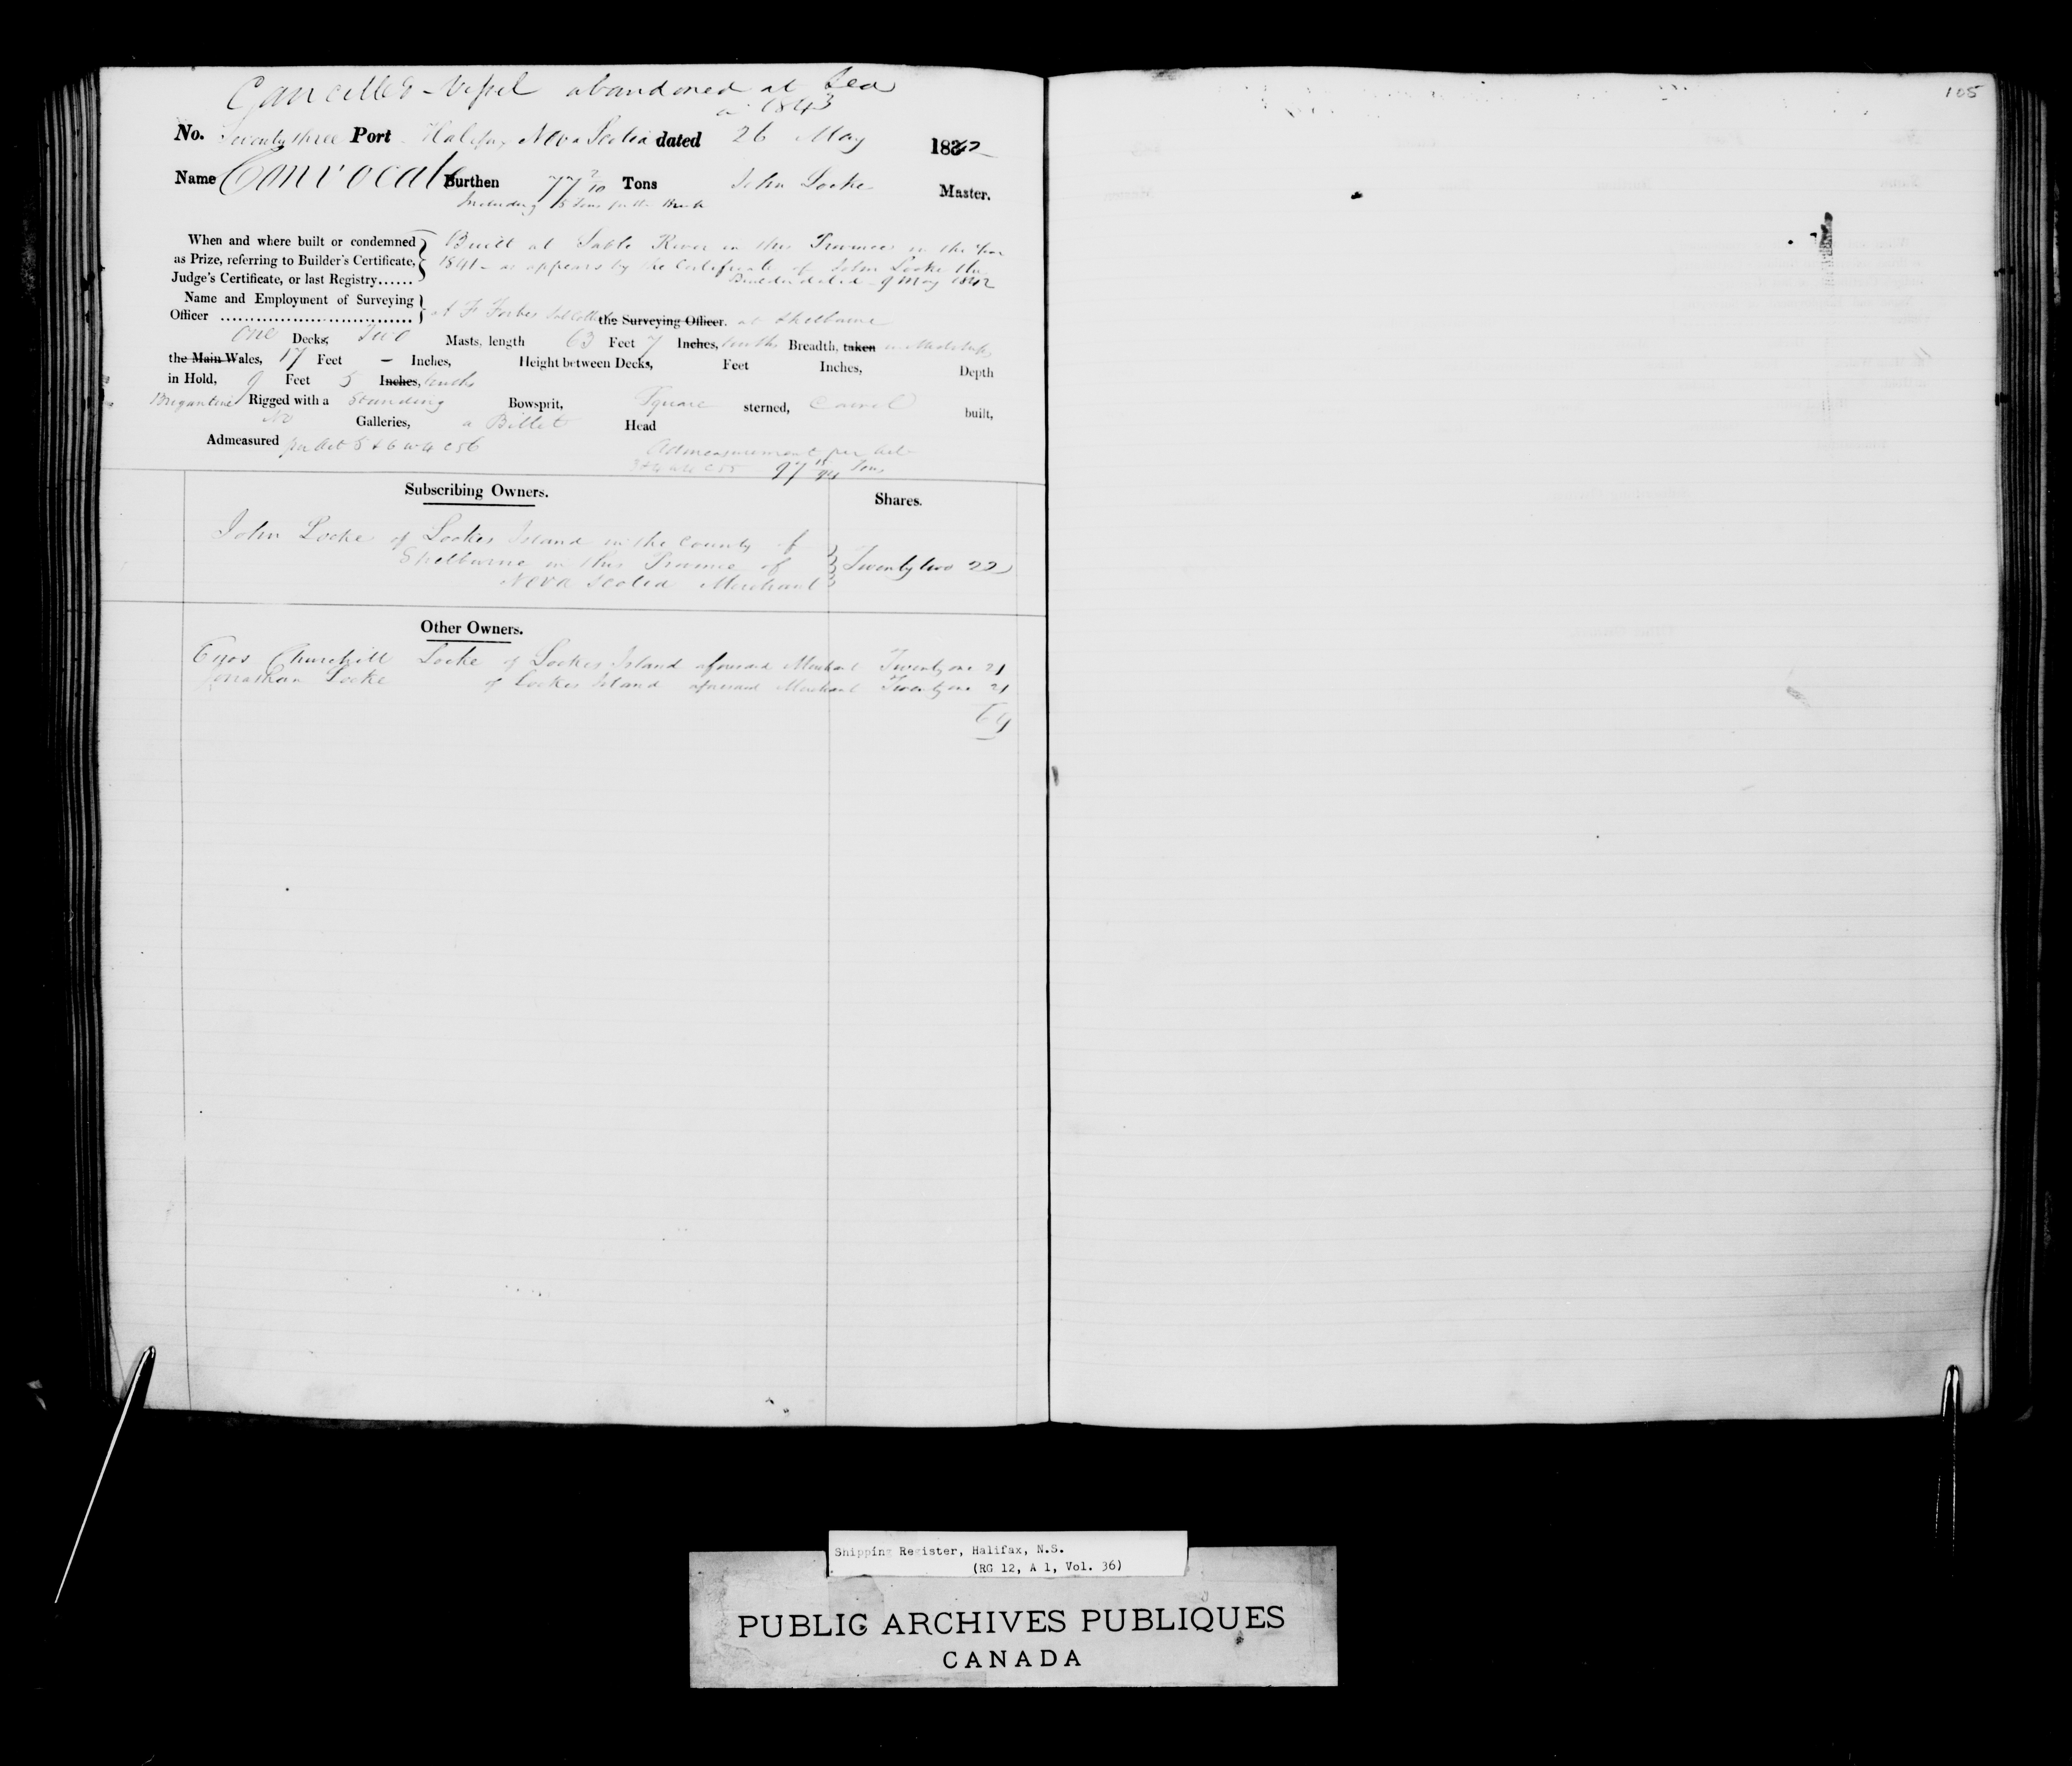 Cancelled - Vessel abandoned at Sea
in 1843
105
No. Seventy three Port Halifax Nova Scotia dated 26 May 1842
Name Convocate Burthen 77 7/10 Tons John Locke Master.
Including 15 Tons for the
When and where built or condemned Built at Sable River in this Province in the Year
as Prize, referring to Builder's Certificate, 1841 - as appears by the Certificate of John Locke the
Judge's Certificate, or last Registry...... Builder dated - 9 May 1842
Name and Employment of Surveying
Officer ................................ Forbes the Surveying Officer. at Shelburne
One Decks, Two Masts, length 63 Feet 7 Inches, tenths Breadth, taken in Midships
the Main Wales, 17 Feet - Inches, Height between Decks, Feet Inches, Depth
in Hold, 9 Feet 5 Inches, tenths
Brigantine Rigged with a Standing Bowsprit, Square sterned, Carvel built,
No Galleries, a Billet Head
Admeasured per Act 5 & 6 W 4 C 56 Admeasurement per Act
3 & 4 W 4 C 55 - 97 Tons
Subscribing Owners. Shares.
John Locke of Lockes Island in the County of
Shelburne in this Province of Twenty two 22
Nova Scotia Merchant
Other Owners.
Churchill Locke of Lockes Island aforesaid Merchant Twenty one 21
Jonathan Locke of Lockes Island aforesaid Merchant Twenty one 21
64
Shipping Register, Halifax, N.S.
(RG 12, A 1, Vol. 36)
PUBLIC ARCHIVES PUBLIQUES
CANADA